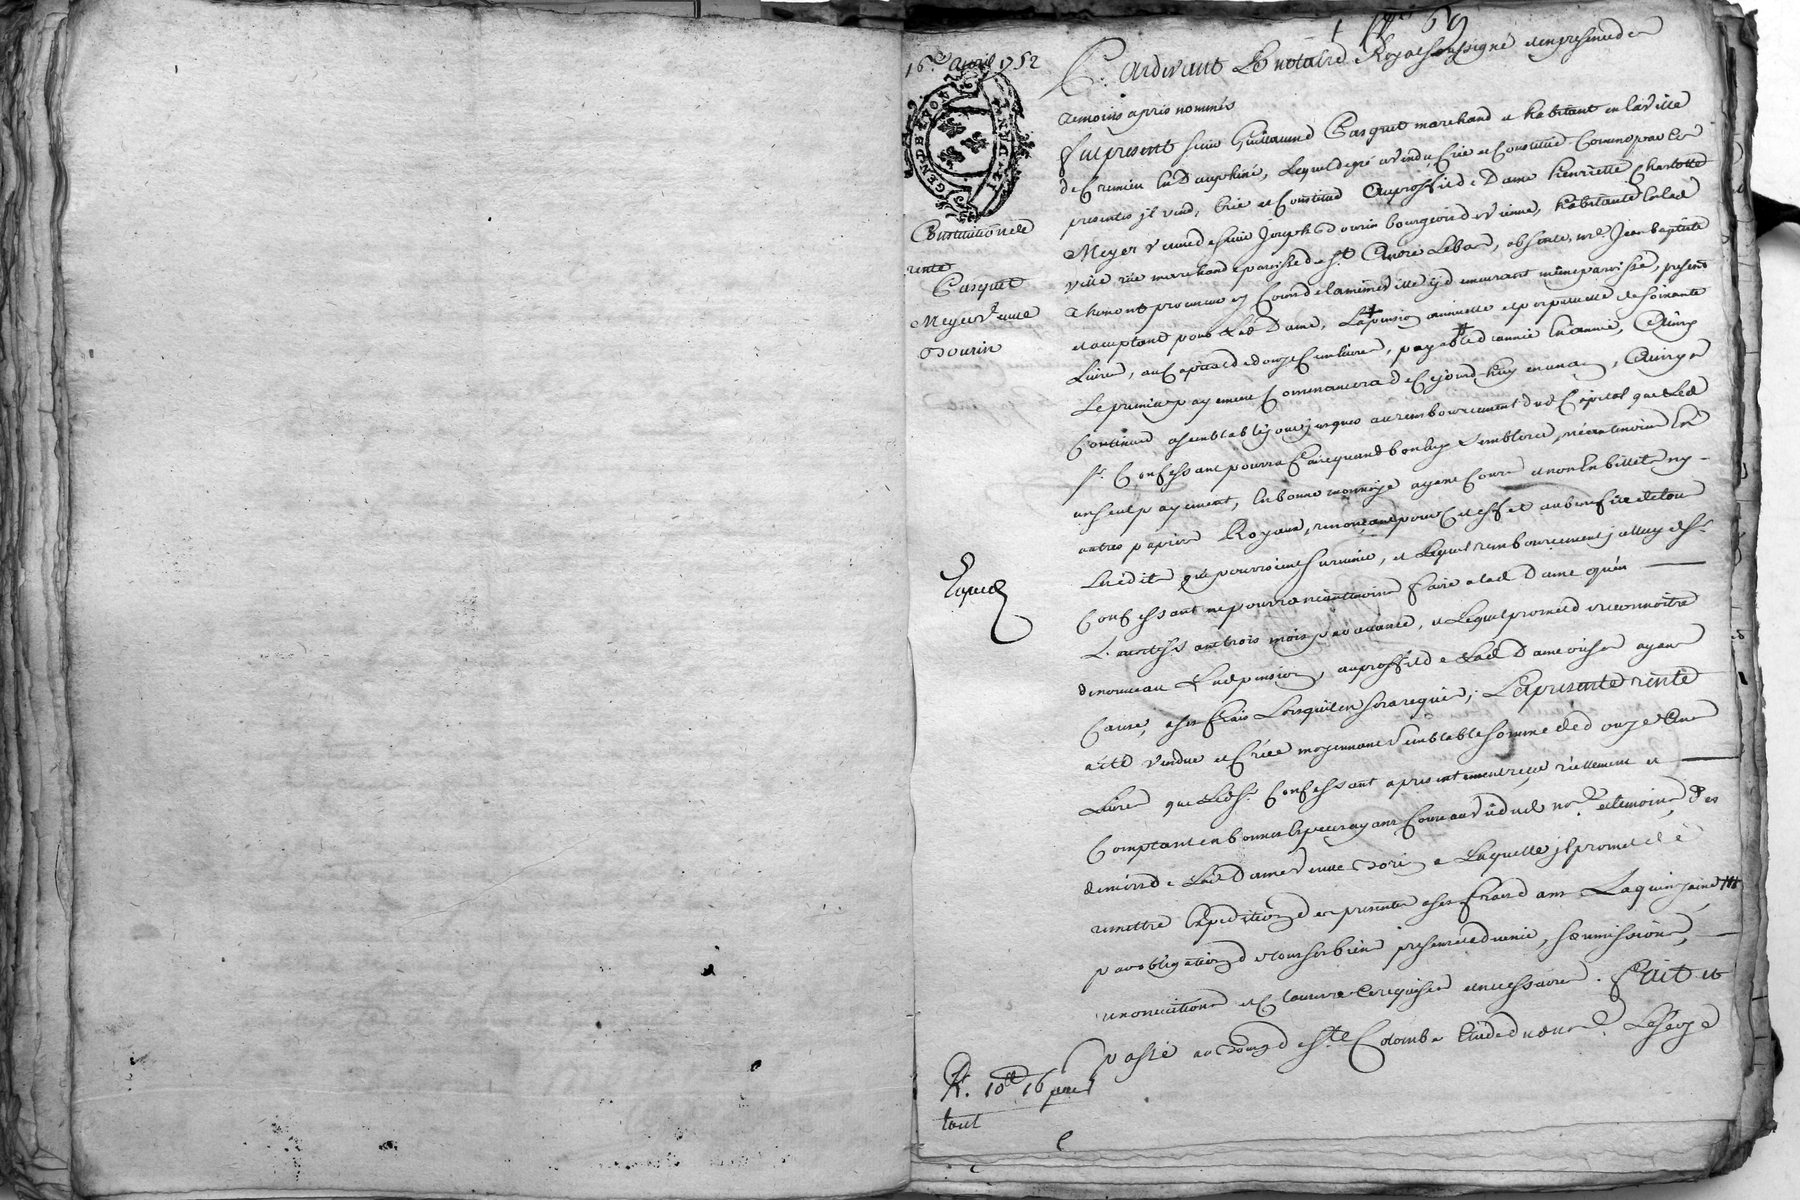 16e avril 1752
GEN. DE LYON
ET DENI.
Constitution de
rente
Pasquet
Meyer veuve
Dourin
Expedié
R. 10tt 16
tout
No 69
Pardevant Le notaire Royal soussigné et en presence des
temoins apres nommés
fut present sieur Guillaume Pasquet marchand et habitant en la ville
de Cremieu en Dauphiné, Lequel de gré a vendu, Crée et Constitué Comme par les
presentes jl vend, Crée et Constitue Au proffit de Dame henriette Charlotte
Meyer veuve de sieur Joseph Dourin bourgeois de vienne, habitante en lad.
ville rüe marchande paroisse de st. André Lebas, absente, me. Jean baptiste
procureur es Cours de la même ville y demeurant même paroisse, present
et acceptant pour Lad. Dame, La pension annuelle et perpetuelle de soixante
Livres, au Capital de douze Cens livres, payable d'année En année, Dont
Le premier payement Commancera de Ce jourd'huy en un an, Ainsy a
Continuer a semblable jour jusques au remboursement dud. Capital que Led.
sr. Confessant pourra faire quand bon luy semblera, neantmoins En
un seul payement, En bonne monnoye ayant Cours et non En billets ny
autres papiers Royaux, renonçant pour Cet effet au benefice de tous
Les édits qui pourroient survenir, et Lequel remboursement jcelluy sr.
Confessant ne pourra néantmoins faire a lad. Dame qu'en
L'avertissant trois mois par avance, et Lequel promet de reconnoître
de nouveau Lad. pension, au proffit de Lad. Dame ou ses ayans
Cause, a ses frais Lorsqu'il en sera requis; La presente rente
a été vendue et Créée moyennant semblable somme de douze Cens
Livres que Led. sr. Confessant a presentement reçu réellement et
Comptant en bonnes Especes ayans Cours au vû dud. nore. et temoins des
deniers de Lad. Dame veuve Dorin a Laquelle jl promet de
remettre Expedition des presentes a ses frais dans La quinzaine
par obligation de tous ses biens presents et avenir, soumissions,
renonciations et Clauses requises et necessaires. Fait et
passé au Bourg de ste. Colombe Etude dud. nore. Le seize